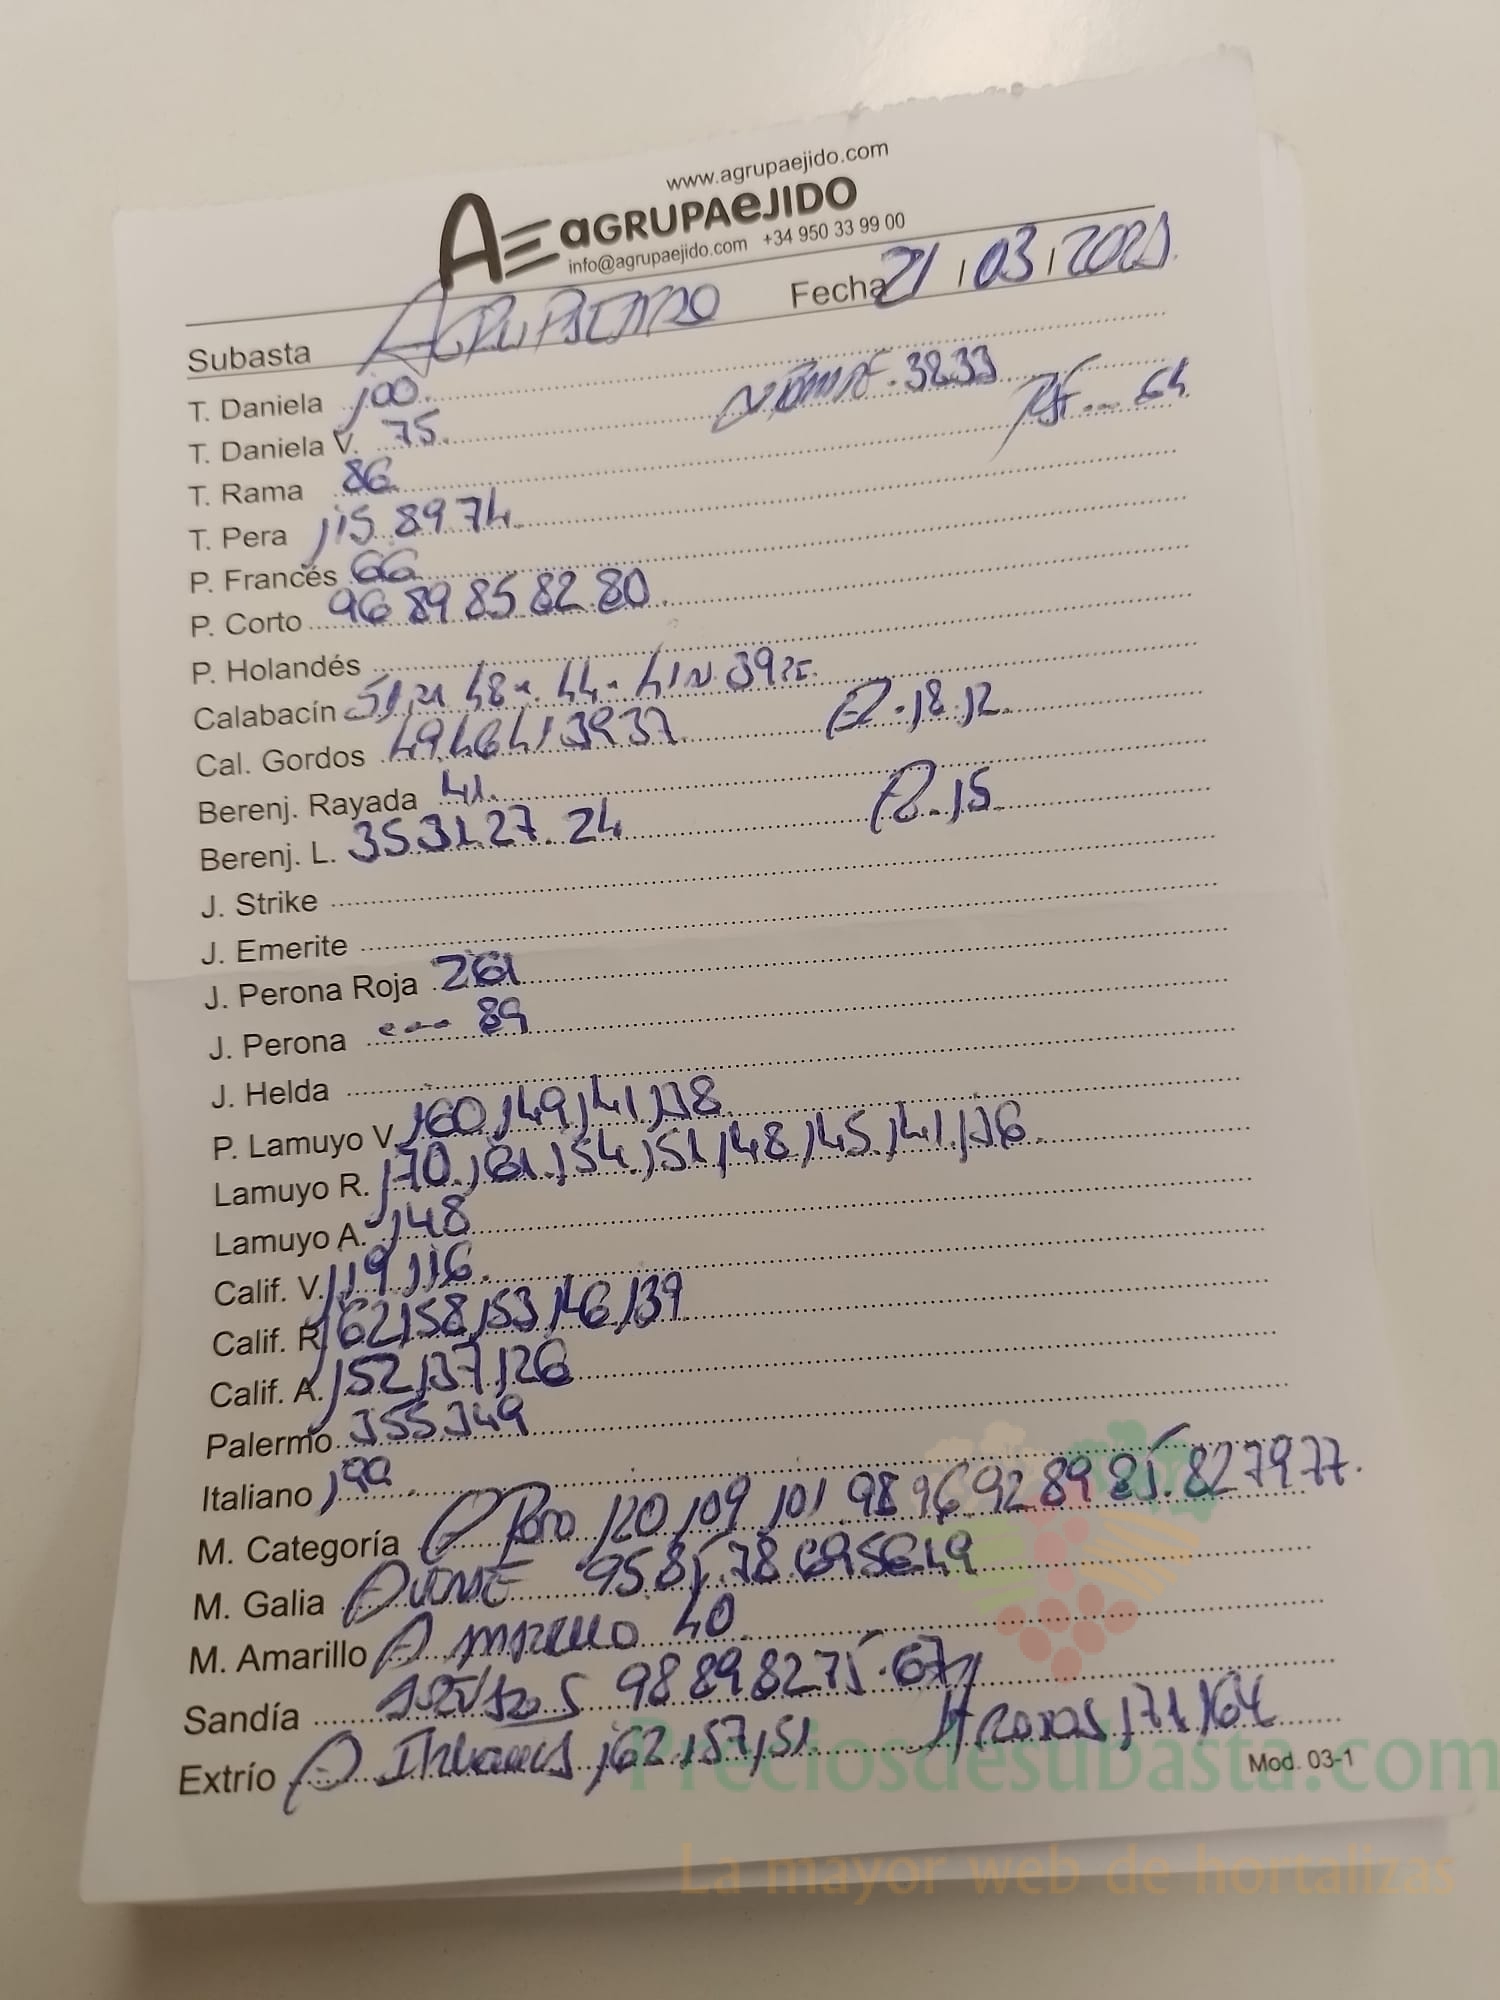 www.agrupaejido.com
AE aGRUPAeJIDO
info@agrupaejido.com +34 950 33 99 00
Subasta AGRUPAEJIDO Fecha 21/03/2021
T. Daniela 100
T. Daniela V. 75 3833
T. Rama 86 64
T. Pera 115 89 74
P. Francés 66
P. Corto 96 89 85 82 80
P. Holandés
Calabacín 51 48 44 41 39
Cal. Gordos 49 46 41 39 37 18 12
Berenj. Rayada 41
Berenj. L. 35 31 27 24 15
J. Strike
J. Emerite
J. Perona Roja 261
J. Perona --- 89
J. Helda
P. Lamuyo V. 160 149 141 138
Lamuyo R. 170 161 154 151 148 145 141 136
Lamuyo A. 148
Calif. V. 119 116
Calif. R. 162 158 153 146 139
Calif. A. 152 137 126
Palermo 355 349
Italiano 199
M. Categoría 120 109 101 98 96 92 89 85 82 79 77
M. Galia 95 85 78 69 56 49
M. Amarillo Amarillo 40
Sandía 98 89 82 75 67
Extrío 162 157 151 171 164
Mod. 03-1
Preciosdesubasta.com
La mayor web de hortalizas